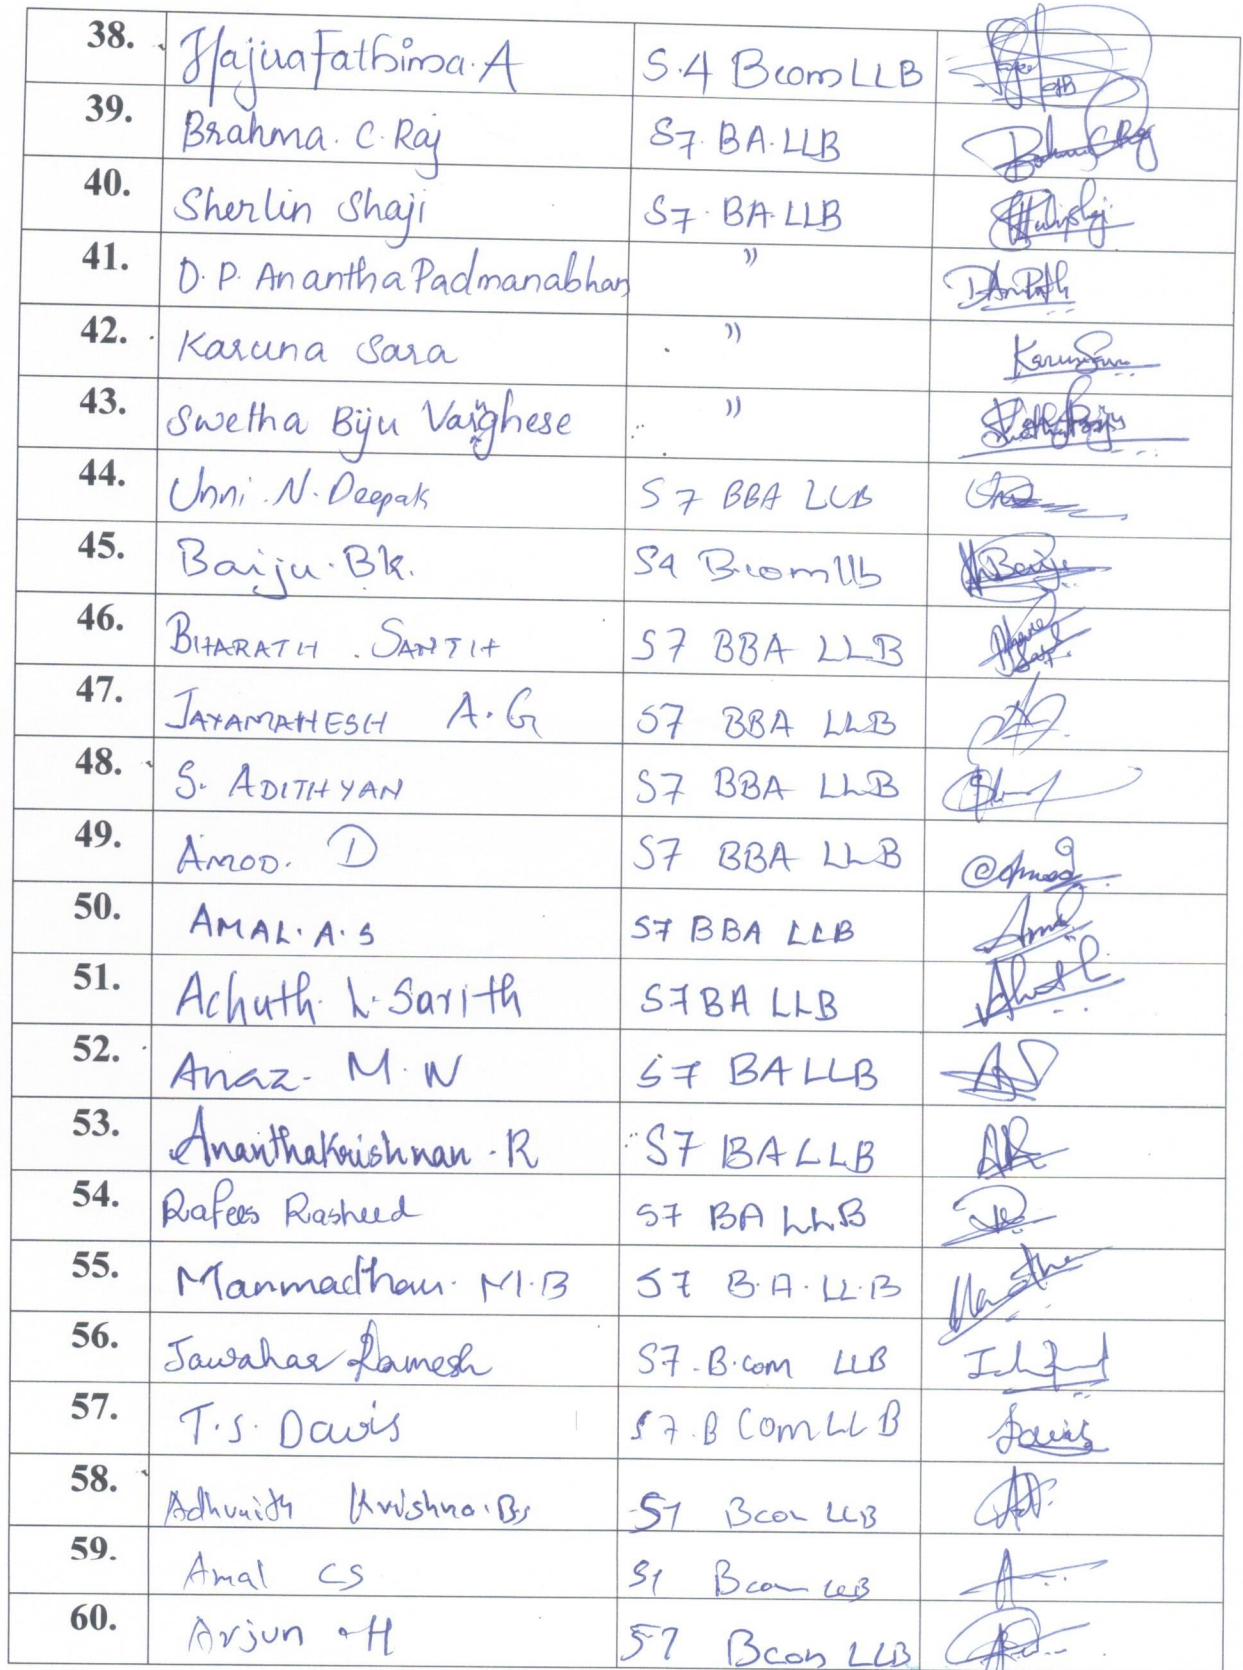 38. Hajira Fathima. A S.4 Bcom LLB
39. Brahma. C. Raj S7. BA. LLB
40. Sherlin Shaji S7. BA. LLB
41. D. P. Anantha Padmanabhan "
42. Karuna Sara " Karuna Sara
43. Swetha Biju Varghese "
44. Unni. N. Deepak S7 BBA LLB
45. Baiju. Bk. S4 B.com llb
46. BHARATH. SANTH S7 BBA LLB
47. JAYAMAHESH A. G S7 BBA LLB
48. S. ADITHYAN S7 BBA LLB
49. AMOD. D S7 BBA LLB
50. AMAL. A. S S7 BBA LLB
51. Achuth. L. Sarith S7 BA LLB
52. Anaz. M. N S7 BA LLB
53. Ananthakrishnan. R S7 BA LLB
54. Rafees Rasheed S7 BA LLB
55. Manmadhan. M.B S7 B.A. LL.B
56. Jawahar Ramesh S7. B.com LLB
57. T.S. Davis S7. B Com LL B Davis
58. Krishna. Bs Bcom LLB
59. Amal CS Bcom LLB
60. Arjun H Bcom LLB